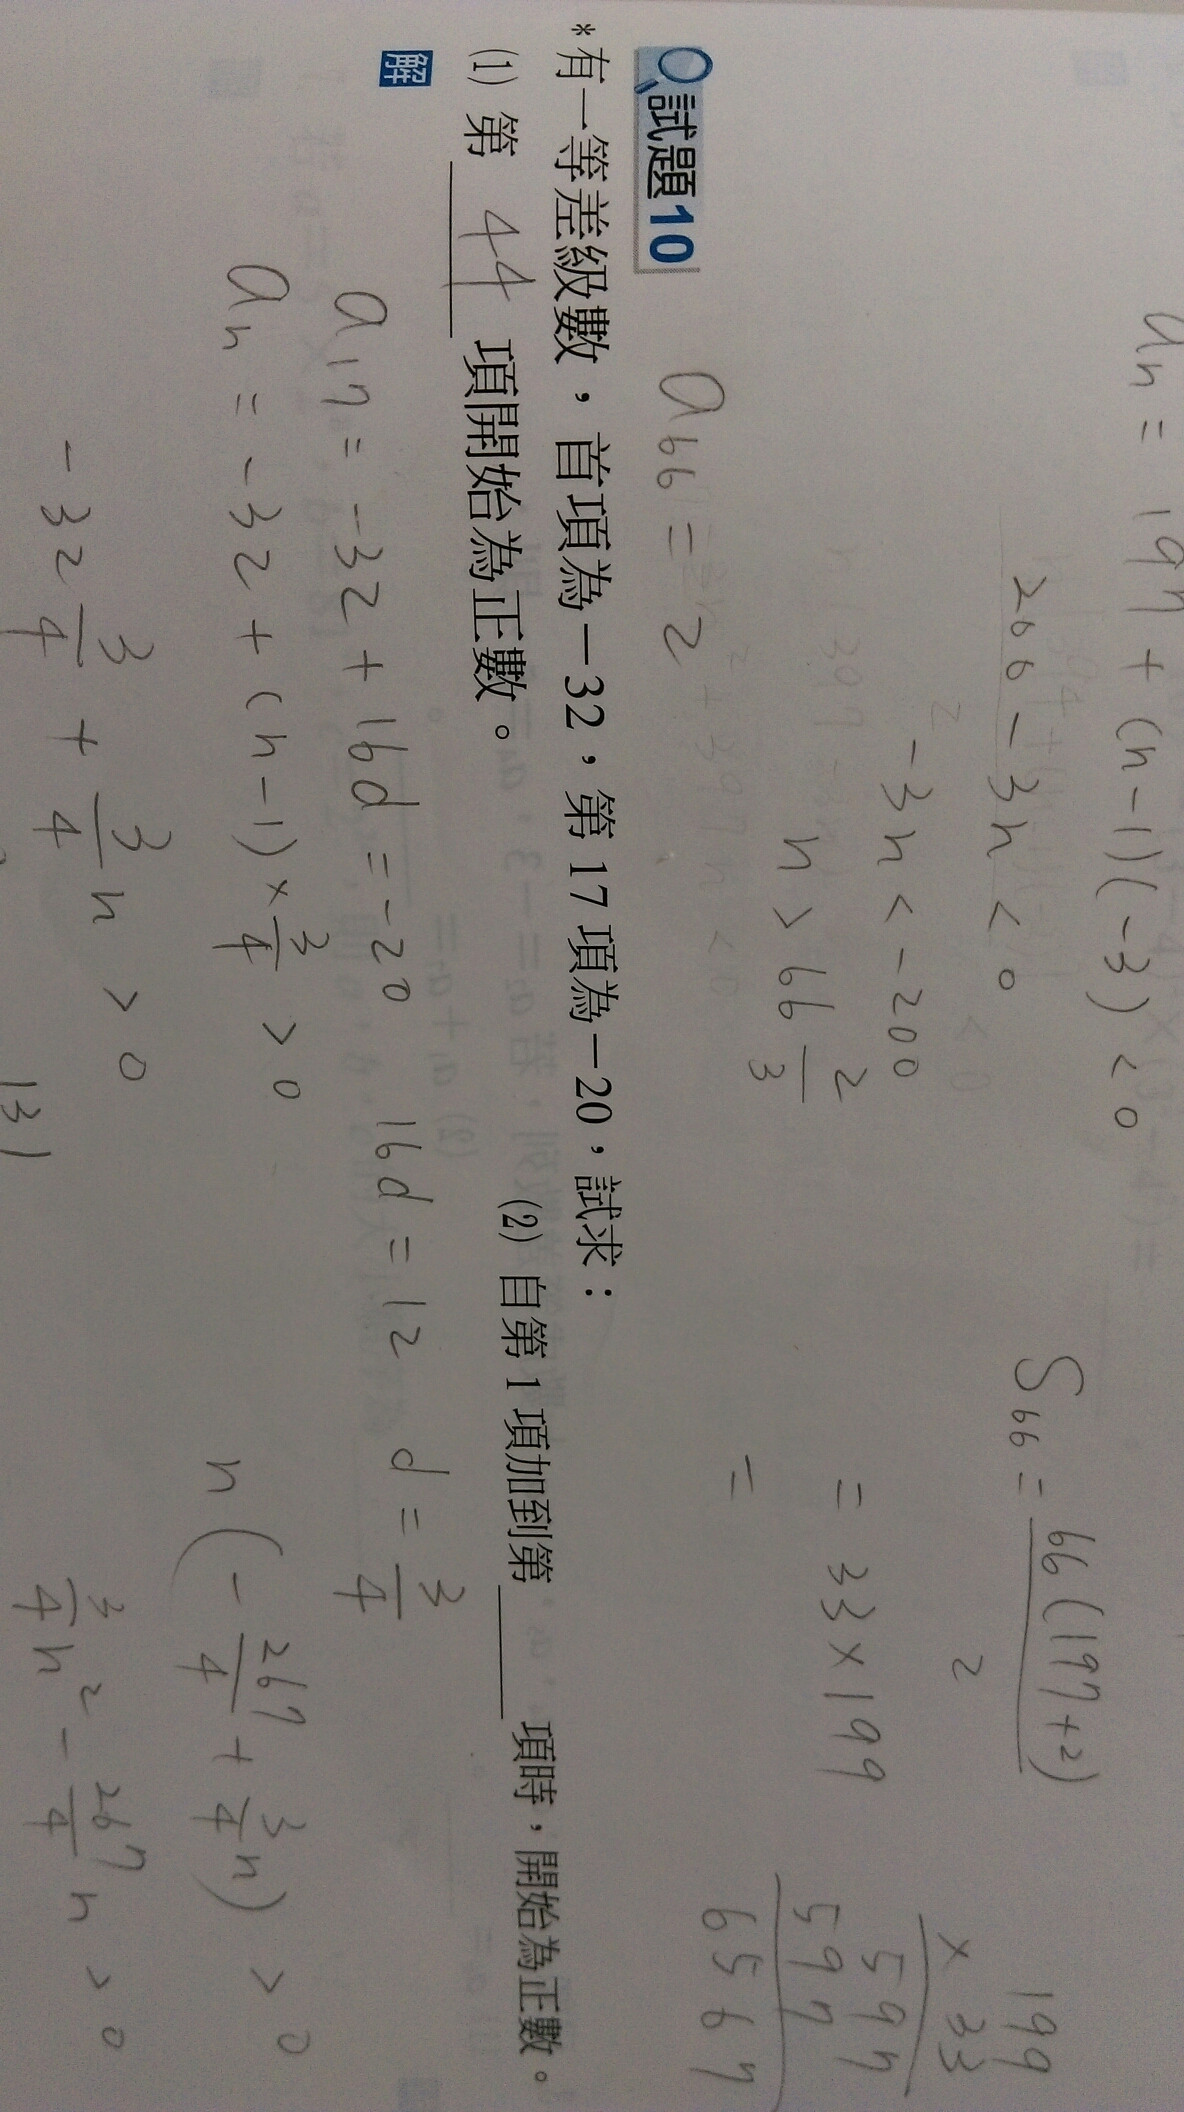 aₙ = 197 + (n-1)(-3) < 0
200 - 3n < 0
-3n < -200
n > 66 2/3
a₆₆ = 2
S₆₆ = 66(197+2)/2
= 33 × 199
=
199
× 33
597
597
6567
試題10
*有一等差級數，首項為－32，第 17 項為－20，試求：
(1) 第 44 項開始為正數。
(2) 自第 1 項加到第 項時，開始為正數。
解
a₁₇ = -32 + 16d = -20 16d = 12 d = 3/4
aₙ = -32 + (n-1) × 3/4 > 0
-32 3/4 + 3/4 n > 0
131
n(-267/4 + 3/4 n) > 0
3/4 n² - 267/4 n > 0